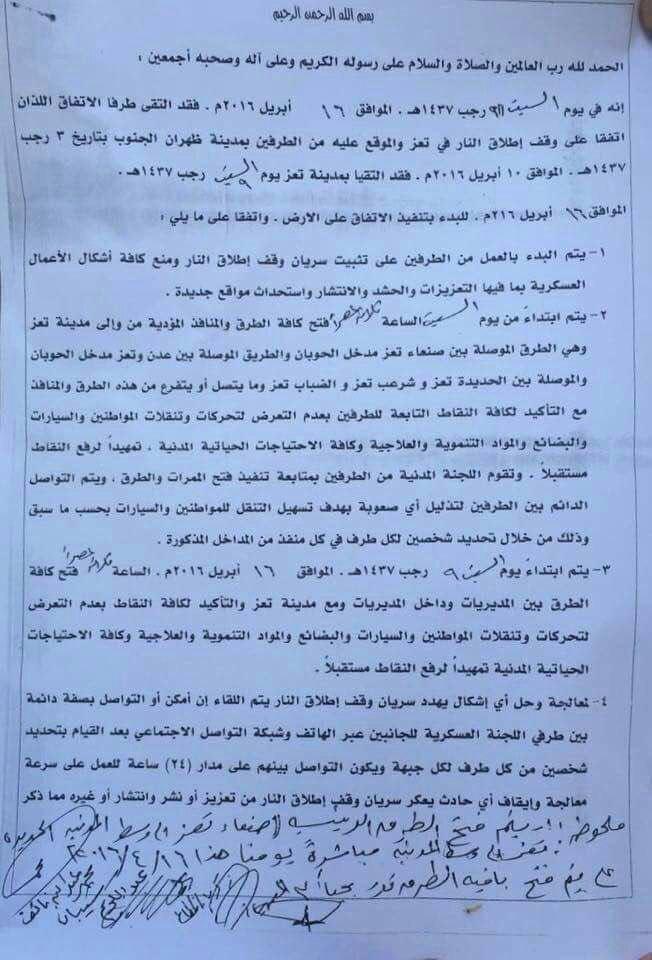 بسم الله الرحمن الرحيم
الحمد لله رب العالمين والصلاة والسلام على رسوله الكريم وعلى آله وصحبه أجمعين :
إنه في يوم السبت ٩ رجب ١٤٣٧هـ . الموافق ١٦ أبريل ٢٠١٦م . فقد التقى طرفا الاتفاق اللذان
اتفقا على وقف إطلاق النار في تعز والموقع عليه من الطرفين بمدينة ظهران الجنوب بتاريخ ٣ رجب
١٤٣٧هـ . الموافق ١٠ أبريل ٢٠١٦م . فقد التقيا بمدينة تعز يوم السبت ٩ رجب ١٤٣٧هـ .
الموافق ١٦ أبريل ٢١٦م . للبدء بتنفيذ الاتفاق على الارض . واتفقا على ما يلي :
١- يتم البدء بالعمل من الطرفين على تثبيت سريان وقف إطلاق النار ومنع كافة أشكال الأعمال
العسكرية بما فيها التعزيزات والحشد والانتشار واستحداث مواقع جديدة .
٢- يتم ابتداءً من يوم السبت الساعة ثلاثة عصراً فتح كافة الطرق والمنافذ المؤدية من وإلى مدينة تعز
وهي الطرق الموصلة بين صنعاء تعز مدخل الحوبان والطريق الموصلة بين عدن وتعز مدخل الحوبان
والموصلة بين الحديدة تعز و شرعب تعز و الضباب تعز وما يتسل أو يتفرع من هذه الطرق والمنافذ
مع التأكيد لكافة النقاط التابعة للطرفين بعدم التعرض لتحركات وتنقلات المواطنين والسيارات
والبضائع والمواد التنموية والعلاجية وكافة الاحتياجات الحياتية المدنية ، تمهيداً لرفع النقاط
مستقبلاً . وتقوم اللجنة المدنية من الطرفين بمتابعة تنفيذ فتح الممرات والطرق ، ويتم التواصل
الدائم بين الطرفين لتذليل أي صعوبة بهدف تسهيل التنقل للمواطنين والسيارات بحسب ما سبق
وذلك من خلال تحديد شخصين لكل طرف في كل منفذ من المداخل المذكورة .
٣- يتم ابتداءً يوم السبت ٩ رجب ١٤٣٧هـ . الموافق ١٦ أبريل ٢٠١٦م . الساعة ثلاثة عصراً فتح كافة
الطرق بين المديريات وداخل المديريات ومع مدينة تعز والتأكيد لكافة النقاط بعدم التعرض
لتحركات وتنقلات المواطنين والسيارات والبضائع والمواد التنموية والعلاجية وكافة الاحتياجات
الحياتية المدنية تمهيداً لرفع النقاط مستقبلاً .
٤- لمعالجة وحل أي إشكال يهدد سريان وقف إطلاق النار يتم اللقاء إن أمكن أو التواصل بصفة دائمة
بين طرفي اللجنة العسكرية للجانبين عبر الهاتف وشبكة التواصل الاجتماعي بعد القيام بتحديد
شخصين من كل طرف لكل جبهة ويكون التواصل بينهم على مدار (٢٤) ساعة للعمل على سرعة
معالجة وإيقاف أي حادث يعكر سريان وقف إطلاق النار من تعزيز أو نشر وانتشار أو غيره مما ذكر
ملحوظة : ١) يتم فتح الطرق الرئيسية (صنعاء تعز وسط المدينة الحديدة
تعز وسط المدينة مباشرة يومنا هذا ١٦/٤/٢٠١٦
٢) يتم فتح باقية الطرق تدريجياً